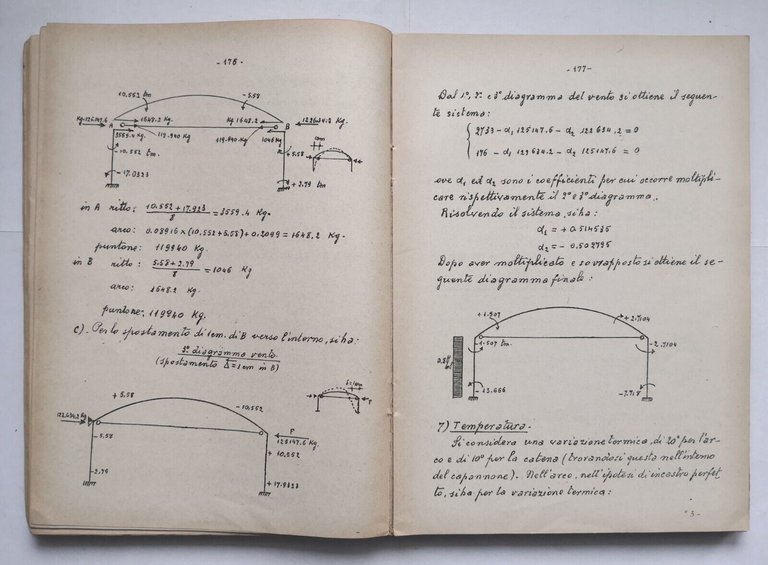 - 176 -
10.552 tm
- 5.58
Kg. 125147.6
1648.2 Kg.
Kg. 1648.2
122634.2 Kg.
A
B
3559.4 Kg.
119.940 Kg.
119.940 Kg.
1046 Kg
- 10.552 tm.
+ 5.58
- 17.9323
+ 2.79
in A ritto: 10.552 + 17.923 / 8 = 3559.4 Kg.
arco: 0.08916 x (10.552 + 5.58) + 0.2099 = 1648,2 Kg.
puntone: 119940 Kg.
in B ritto: 5.58 + 2.79 / 8 = 1046 Kg
arco: 1648.2 Kg
puntone: 119940 Kg.
C) - Per lo spostamento di 1cm. di B verso l'interno, si ha:
3° diagramma vento
(spostamento Δ = 1 cm in B)
+ 5.58
- 10.552
122.634.2 Kg
B
F
125147.6 Kg.
- 5.58
+ 10.552
- 2.79
+ 17.9323
- 177 -
Dal 1°, 2° e 3° diagramma del vento si ottiene il seguen-
te sistema:
2733 - d1 125147.6 - d2 122634.2 = 0
176 - d1 122634.2 - d2 125147.6 = 0
ove d1 ed d2 sono i coefficienti per cui occorre moltipli-
care rispettivamente il 2° e 3° diagramma.
Risolvendo il sistema, si ha:
d1 = + 0.514535
d2 = - 0.502795
Dopo aver moltiplicato e sovrapposto si ottiene il se-
guente diagramma finale:
+ 1.507
+ 2.7104
- 1.507 tm.
- 2.7104
- 13.666
- 7.718
7) Temperatura.
Si considera una variazione termica, di 20° per l'ar-
co e di 10° per la catena (trovandosi questa nell'interno
del capannone). Nell'arco, nell'ipotesi di incastro perfet
to, si ha per la variazione termica: